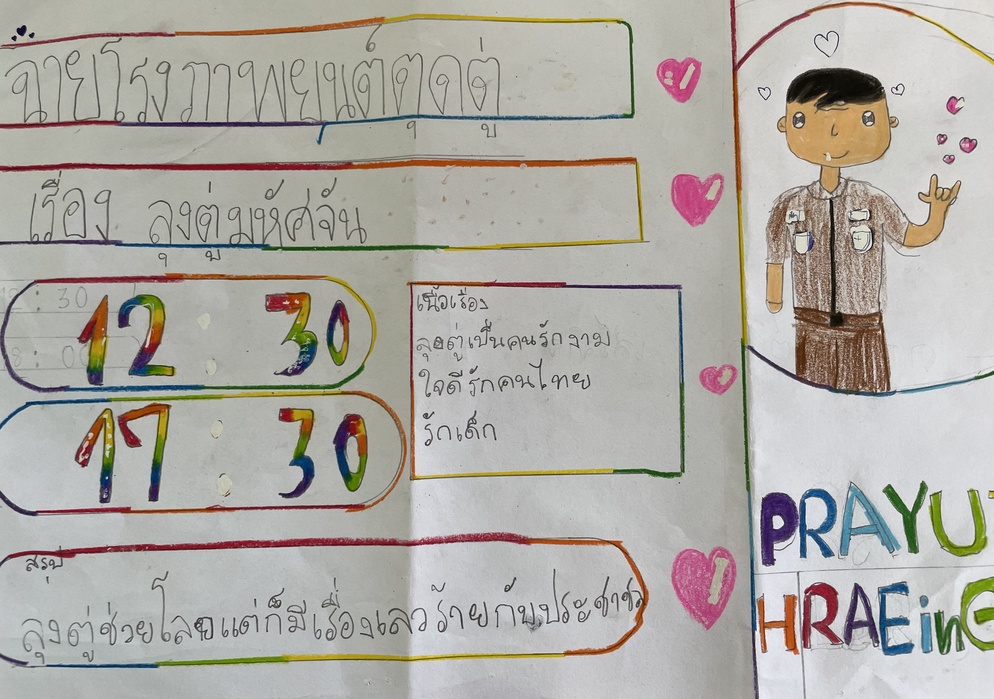 ฉายโรงภาพยนต์ตุดตู่
เรื่อง ลุงตู่มหัศจัน
12 : 30
17 : 30
เนื้อเรื่อง
ลุงตู่เป็นคนรักงาม
ใจดีรักคนไทย
รักเด็ก
สรุป
ลุงตู่ช่วยโลยแต่ก็มีเรื่องเลวร้ายกับประชาช
PRAYUT
HRAEinG